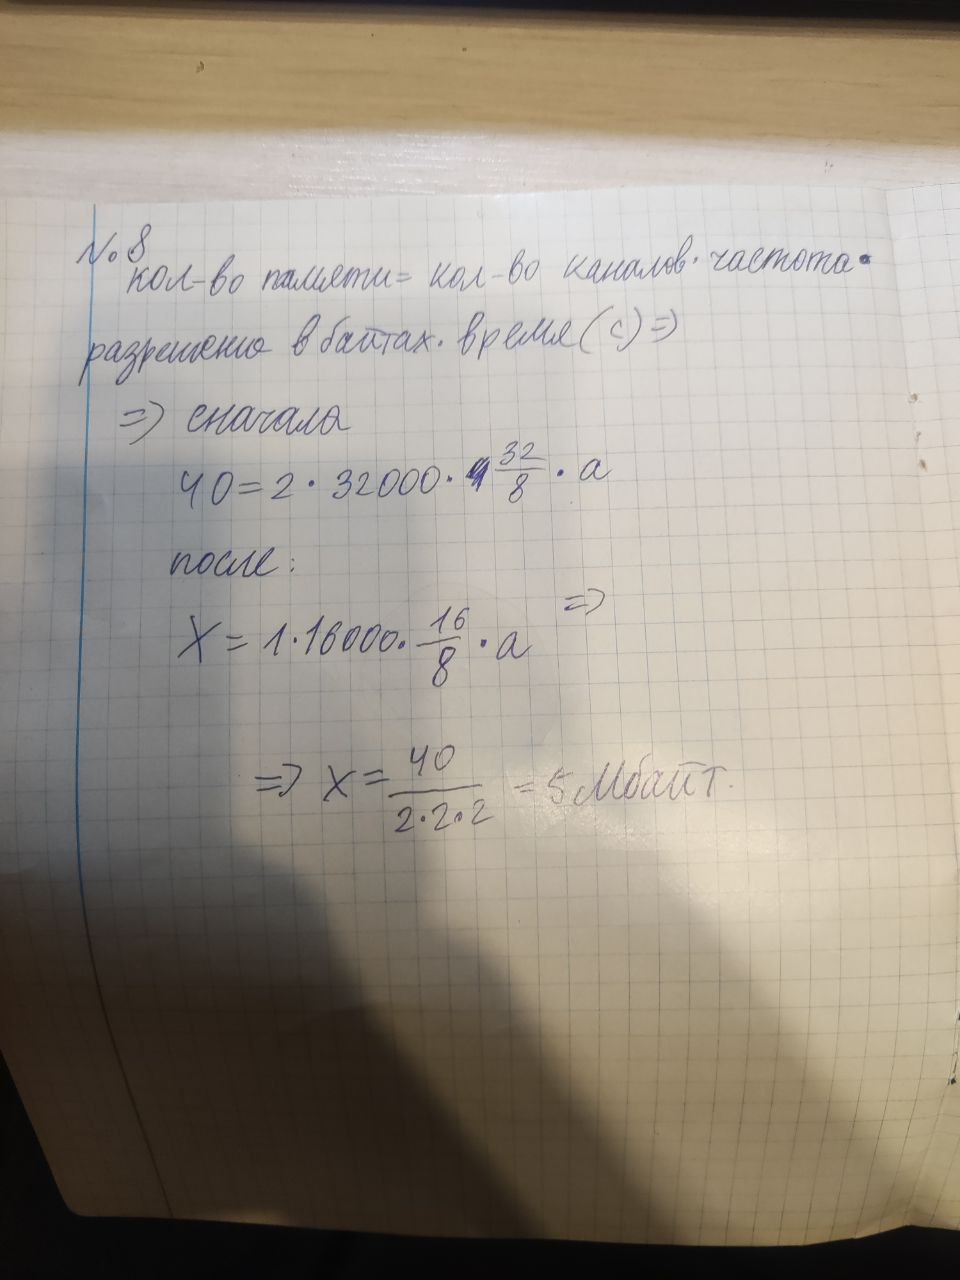 № 8
кол-во памяти = кол-во каналов · частота ·
разрешение в байтах · время (с) =>
=> сначала
40 = 2 · 32000 · 32/8 · a
после:
X = 1 · 16000 · 16/8 · a =>
=> X = 40/(2·2·2) = 5 Мбайт.